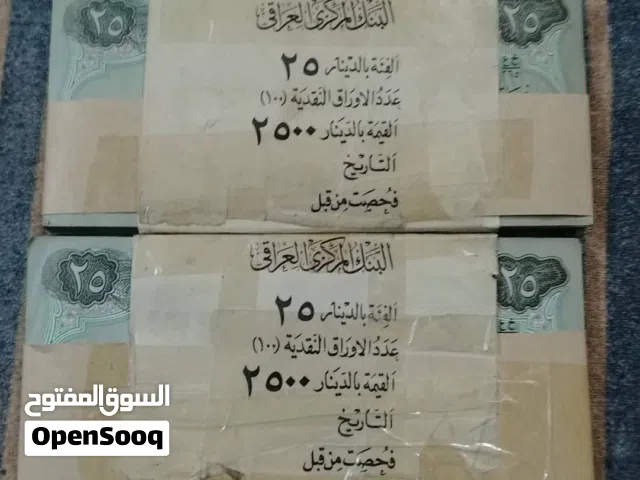 البنك المركزي العراقي
٢٥
٢٥
الفئة بالدينار ٢٥
عدد الاوراق النقدية (١٠٠)
القيمة بالدينار ٢٥٠٠
التاريخ
فحصت من قبل
البنك المركزي العراقي
٢٥
٢٥
الفئة بالدينار ٢٥
عدد الاوراق النقدية (١٠٠)
القيمة بالدينار ٢٥٠٠
التاريخ
فحصت من قبل
السوق المفتوح
OpenSooq